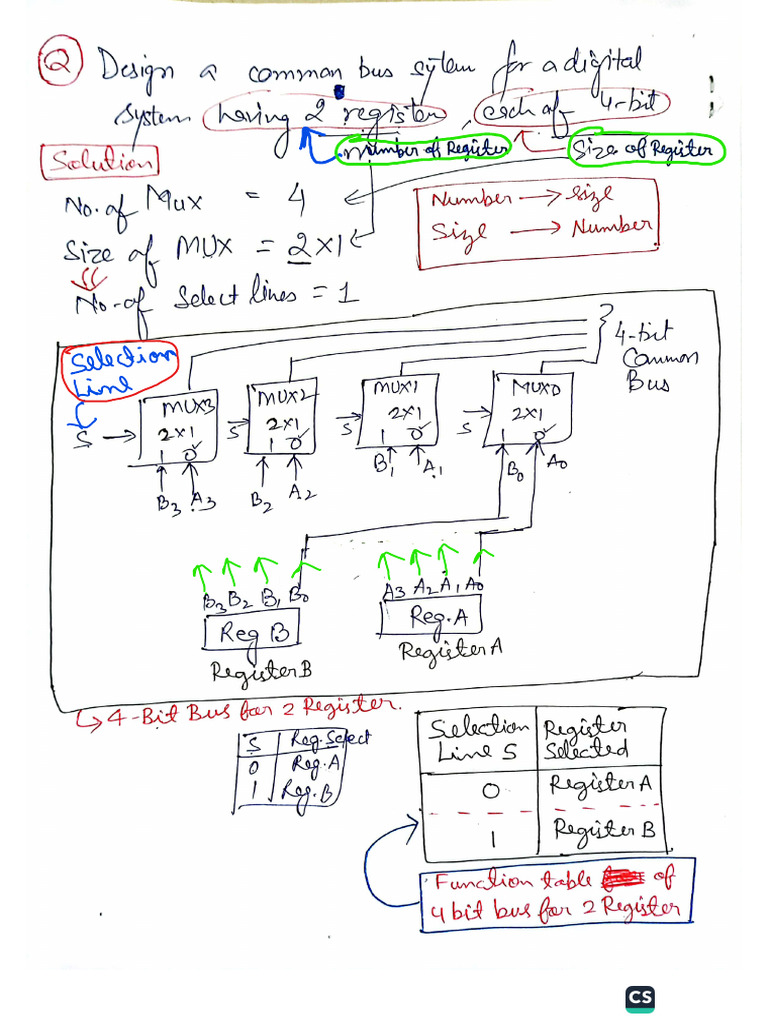 Q Design a common bus sytem for a digital
system having 2 register, each of 4-bit
Number of Register
Size of Register
Solution
No. of Mux = 4
Size of MUX = 2x1
No. of Select lines = 1
Number → size
Size → Number
4-bit
Common
Bus
Selection
Line
S
MUX3
2x1
1 0
S
MUX2
2x1
1 0
S
MUX1
2x1
1 0
S
MUX0
2x1
1 0
B3 A3
B2 A2
B1 A1
B0 A0
B3 B2 B1 B0
Reg B
Register B
A3 A2 A1 A0
Reg. A
Register A
4-Bit Bus for 2 Register.
S Reg. Select
0 Reg. A
1 Reg. B
Selection Line S Register Selected
0 Register A
1 Register B
Function table of
4 bit bus for 2 Register
CS